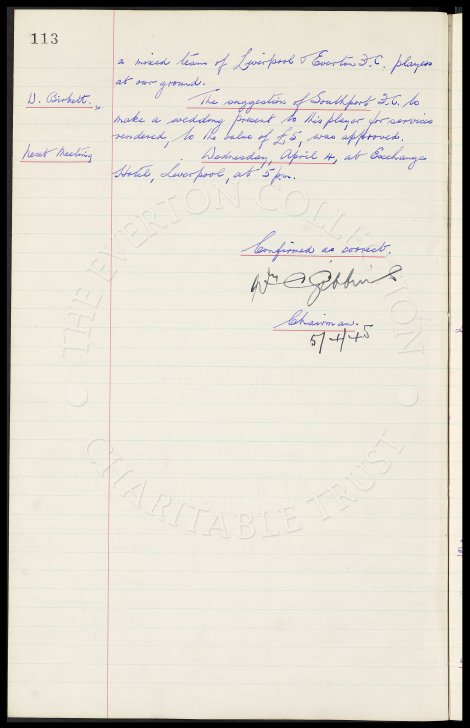 113
a mixed team of Liverpool & Everton F.C. players
at our ground.
D. Birkett.
The suggestion of Southport F.C. to
make a wedding present to this player for services
rendered, to the value of £5, was approved.
Next Meeting
Wednesday, April 4, at Exchange
Hotel, Liverpool, at 5 p.m.
Confirmed as correct.
Wm C Gibbins
Chairman.
5/4/45
THE EVERTON COLLECTION
CHARITABLE TRUST